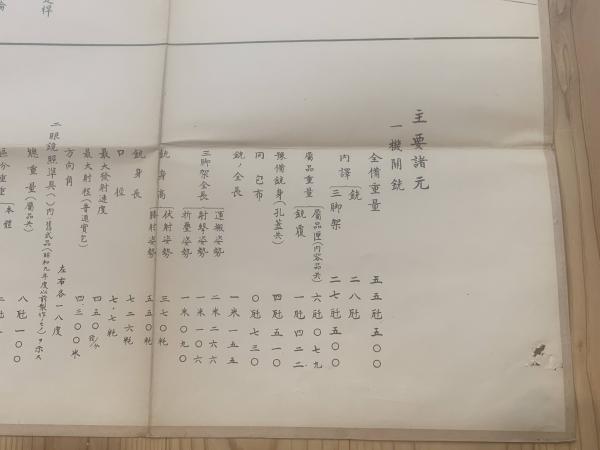 主要諸元
一 機關銃
全備重量 五五瓩五〇〇
內譯 銃 二八瓩
三脚架 二七瓩五〇〇
屬品重量 屬品匣(內容品共) 六瓩〇七九
銃覆 一瓩四二二
豫備銃身(孔蓋共) 四瓩五一〇
同包布 〇瓩七三〇
銃ノ全長 一米一五五
三脚架全長 運搬姿勢 二米二六六
射擊姿勢 一米一〇六
折疊姿勢 一米〇九〇
銃身高 伏射姿勢 三七〇粍
膝射姿勢 五五〇粍
銃身長 七二六粍
口徑 七・七粍
最大發射速度 四五〇發/分
最大射程(普通實包) 四、三〇〇米
方向角 左右各一八度
二 眼鏡照準具( )內ハ舊式品(昭和九年度以前製作ノモノ)ヲ示ス
總重量(屬品共) 八瓩一〇〇
區分重量 本體